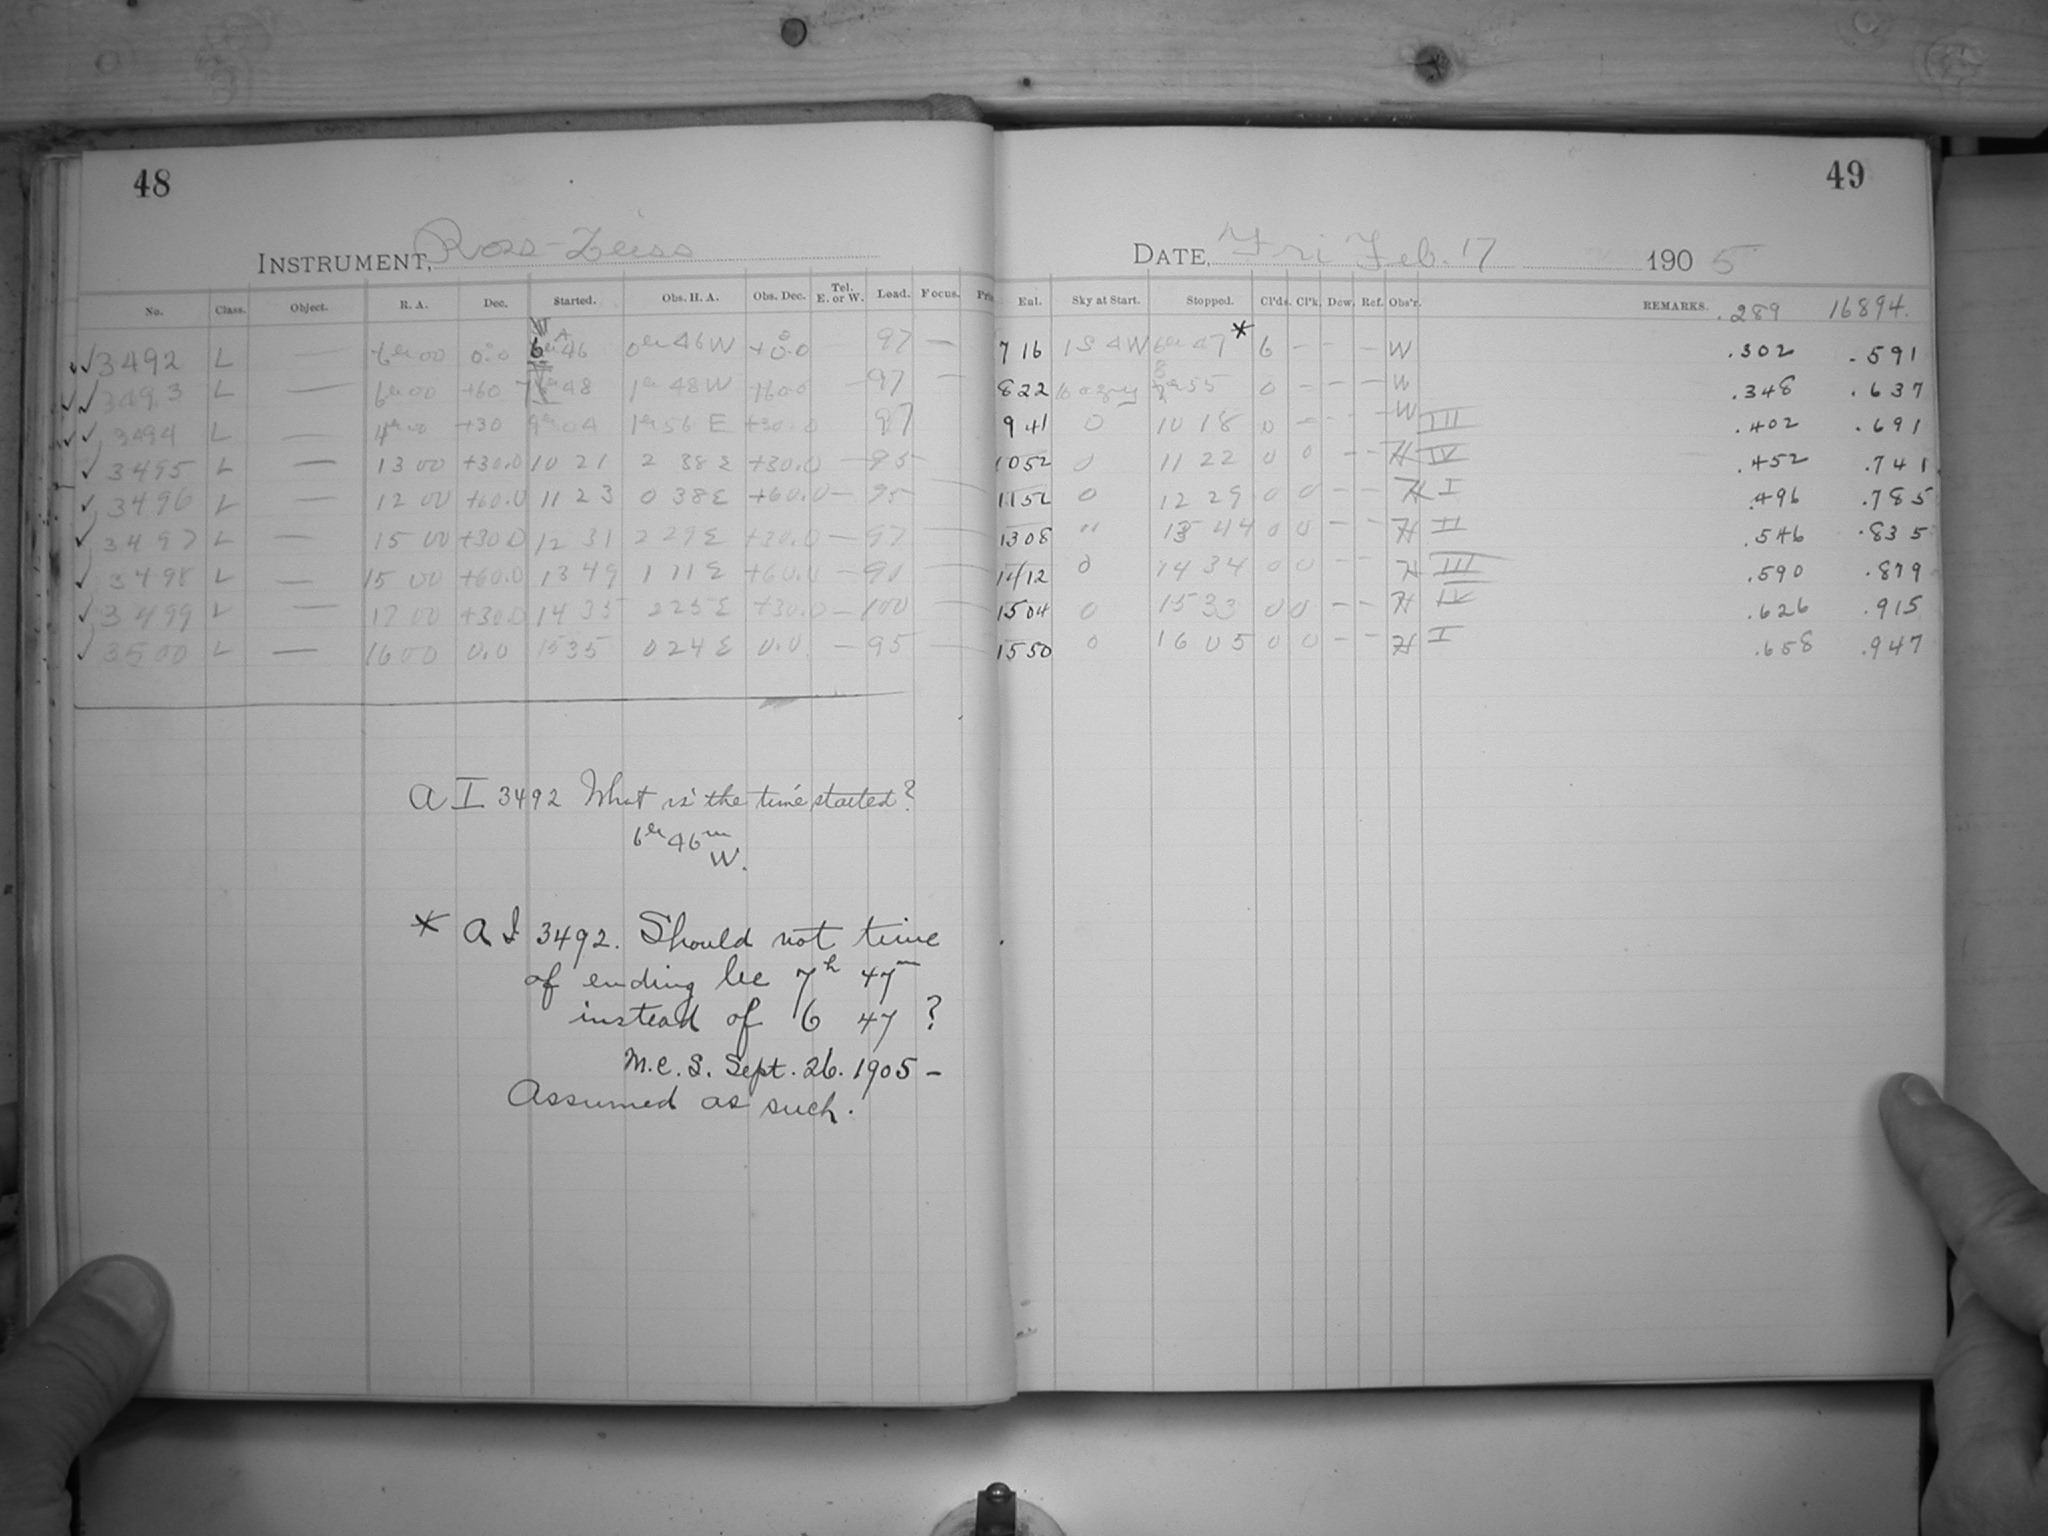 48
49
INSTRUMENT, Ross-Zeiss
DATE, Fri Feb. 17 1905
No. Class. Object. R. A. Dec. Started. Obs. H. A. Obs. Dec. Tel. E. or W. Lead. Focus. Ent. Sky at Start. Stopped. Cl'ds. Cl'k. Dew. Ref. Obs'r. REMARKS. .289 16894.
✓✓ 3492 L — 6h 00 0°.0 6h 46 0h 46 W +0°.0 97 — 7 16 6h 47 * 6 - - - W .302 .591
✓✓ 3493 L — 6h 00 +60 48 1h 48 W +60.0 — 97 — 8 22 55 0 - - - W .348 .637
✓✓ 3494 L — +30 9h 04 1h 56 E +30.0 97 9 41 0 10 18 0 - - - W III .402 .691
✓ 3495 L — 13 00 +30.0 10 21 2 38 E +30.0 — 95 — 10 52 0 11 22 0 0 - - H IV .452 .741
✓ 3496 L — 12 00 +60.0 11 23 0 38 E +60.0 — 95 — 11 52 0 12 29 0 0 - - H I .496 .785
✓ 3497 L — 15 00 +30.0 12 31 2 29 E +30.0 — 97 — 13 08 " 13 44 0 0 - - H II .546 .835
✓ 3498 L — 15 00 +60.0 13 49 1 11 E +60.0 — — 14 12 0 14 34 0 0 - - H III .590 .879
✓ 3499 L — 17 00 +30.0 14 35 2 25 E +30.0 — 100 — 15 04 0 15 33 0 0 - - H IV .626 .915
✓ 3500 L — 16 00 0.0 15 35 0 24 E 0.0 — 95 — 15 50 0 16 05 0 0 - - H I .658 .947
A I 3492 What is the time started?
6h 46m
W.
* A I 3492. Should not time
of ending be 7h 47m
instead of 6 47 ?
M.C.S. Sept. 26. 1905 -
Assumed as such.